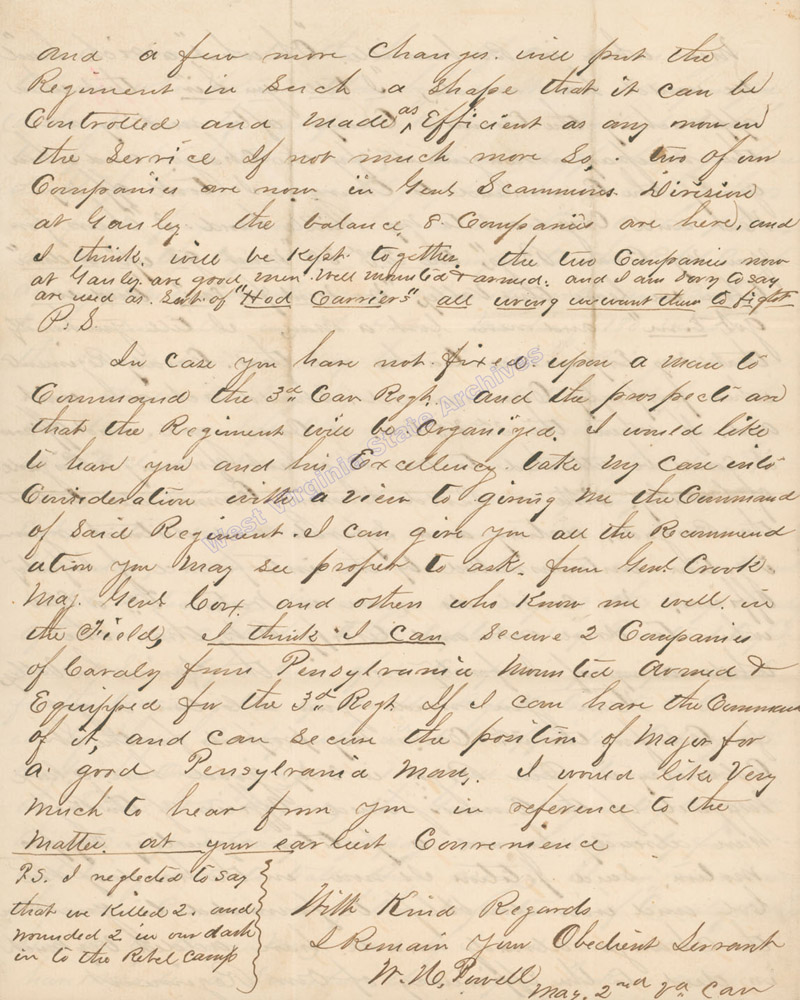 and a few more changes will put the
Regiment in such a shape that it can be
Controlled and made as Efficient as any now in
the Service If not much more so. two of our
Companies are now in Genl Scammons Division
at Gauley the balance 8 Companies are here, and
I think will be Kept together. the two Companies now
at Gauley are good men well mounted & armed. and I am sory to say
are used as Sort of "Hod Carriers" all wrong we want them to fight
P.S.
In case you have not fixed upon a man to
Command the 3d Cav Regt. and the prospects are
that the Regiment will be Organized. I would like
to have you and his Excellency take my case into
Consideration with a view to giving me the Command
of said Regiment. I can give you all the Recommend
ation you may see proper to ask. from Genl Crook
Maj. Genl Cox and others who Know me well in
the Field, I think I can secure 2 Companies
of Cavaly from Pensylvania Mounted Armed &
Equipped for the 3d Regt If I can have the Command
of it, and can secure the position of Major for
a good Pensylvania Man. I would like Very
much to hear from you in reference to the
matter at your earliest Convenience
P.S. I neglected to say
that we Killed 2. and
wounded 2 in our dash
in to the Rebel camp
With Kind Regards
I Remain your Obedient Servant
W. H. Powell
Maj. 2nd Va Cav
West Virginia State Archives